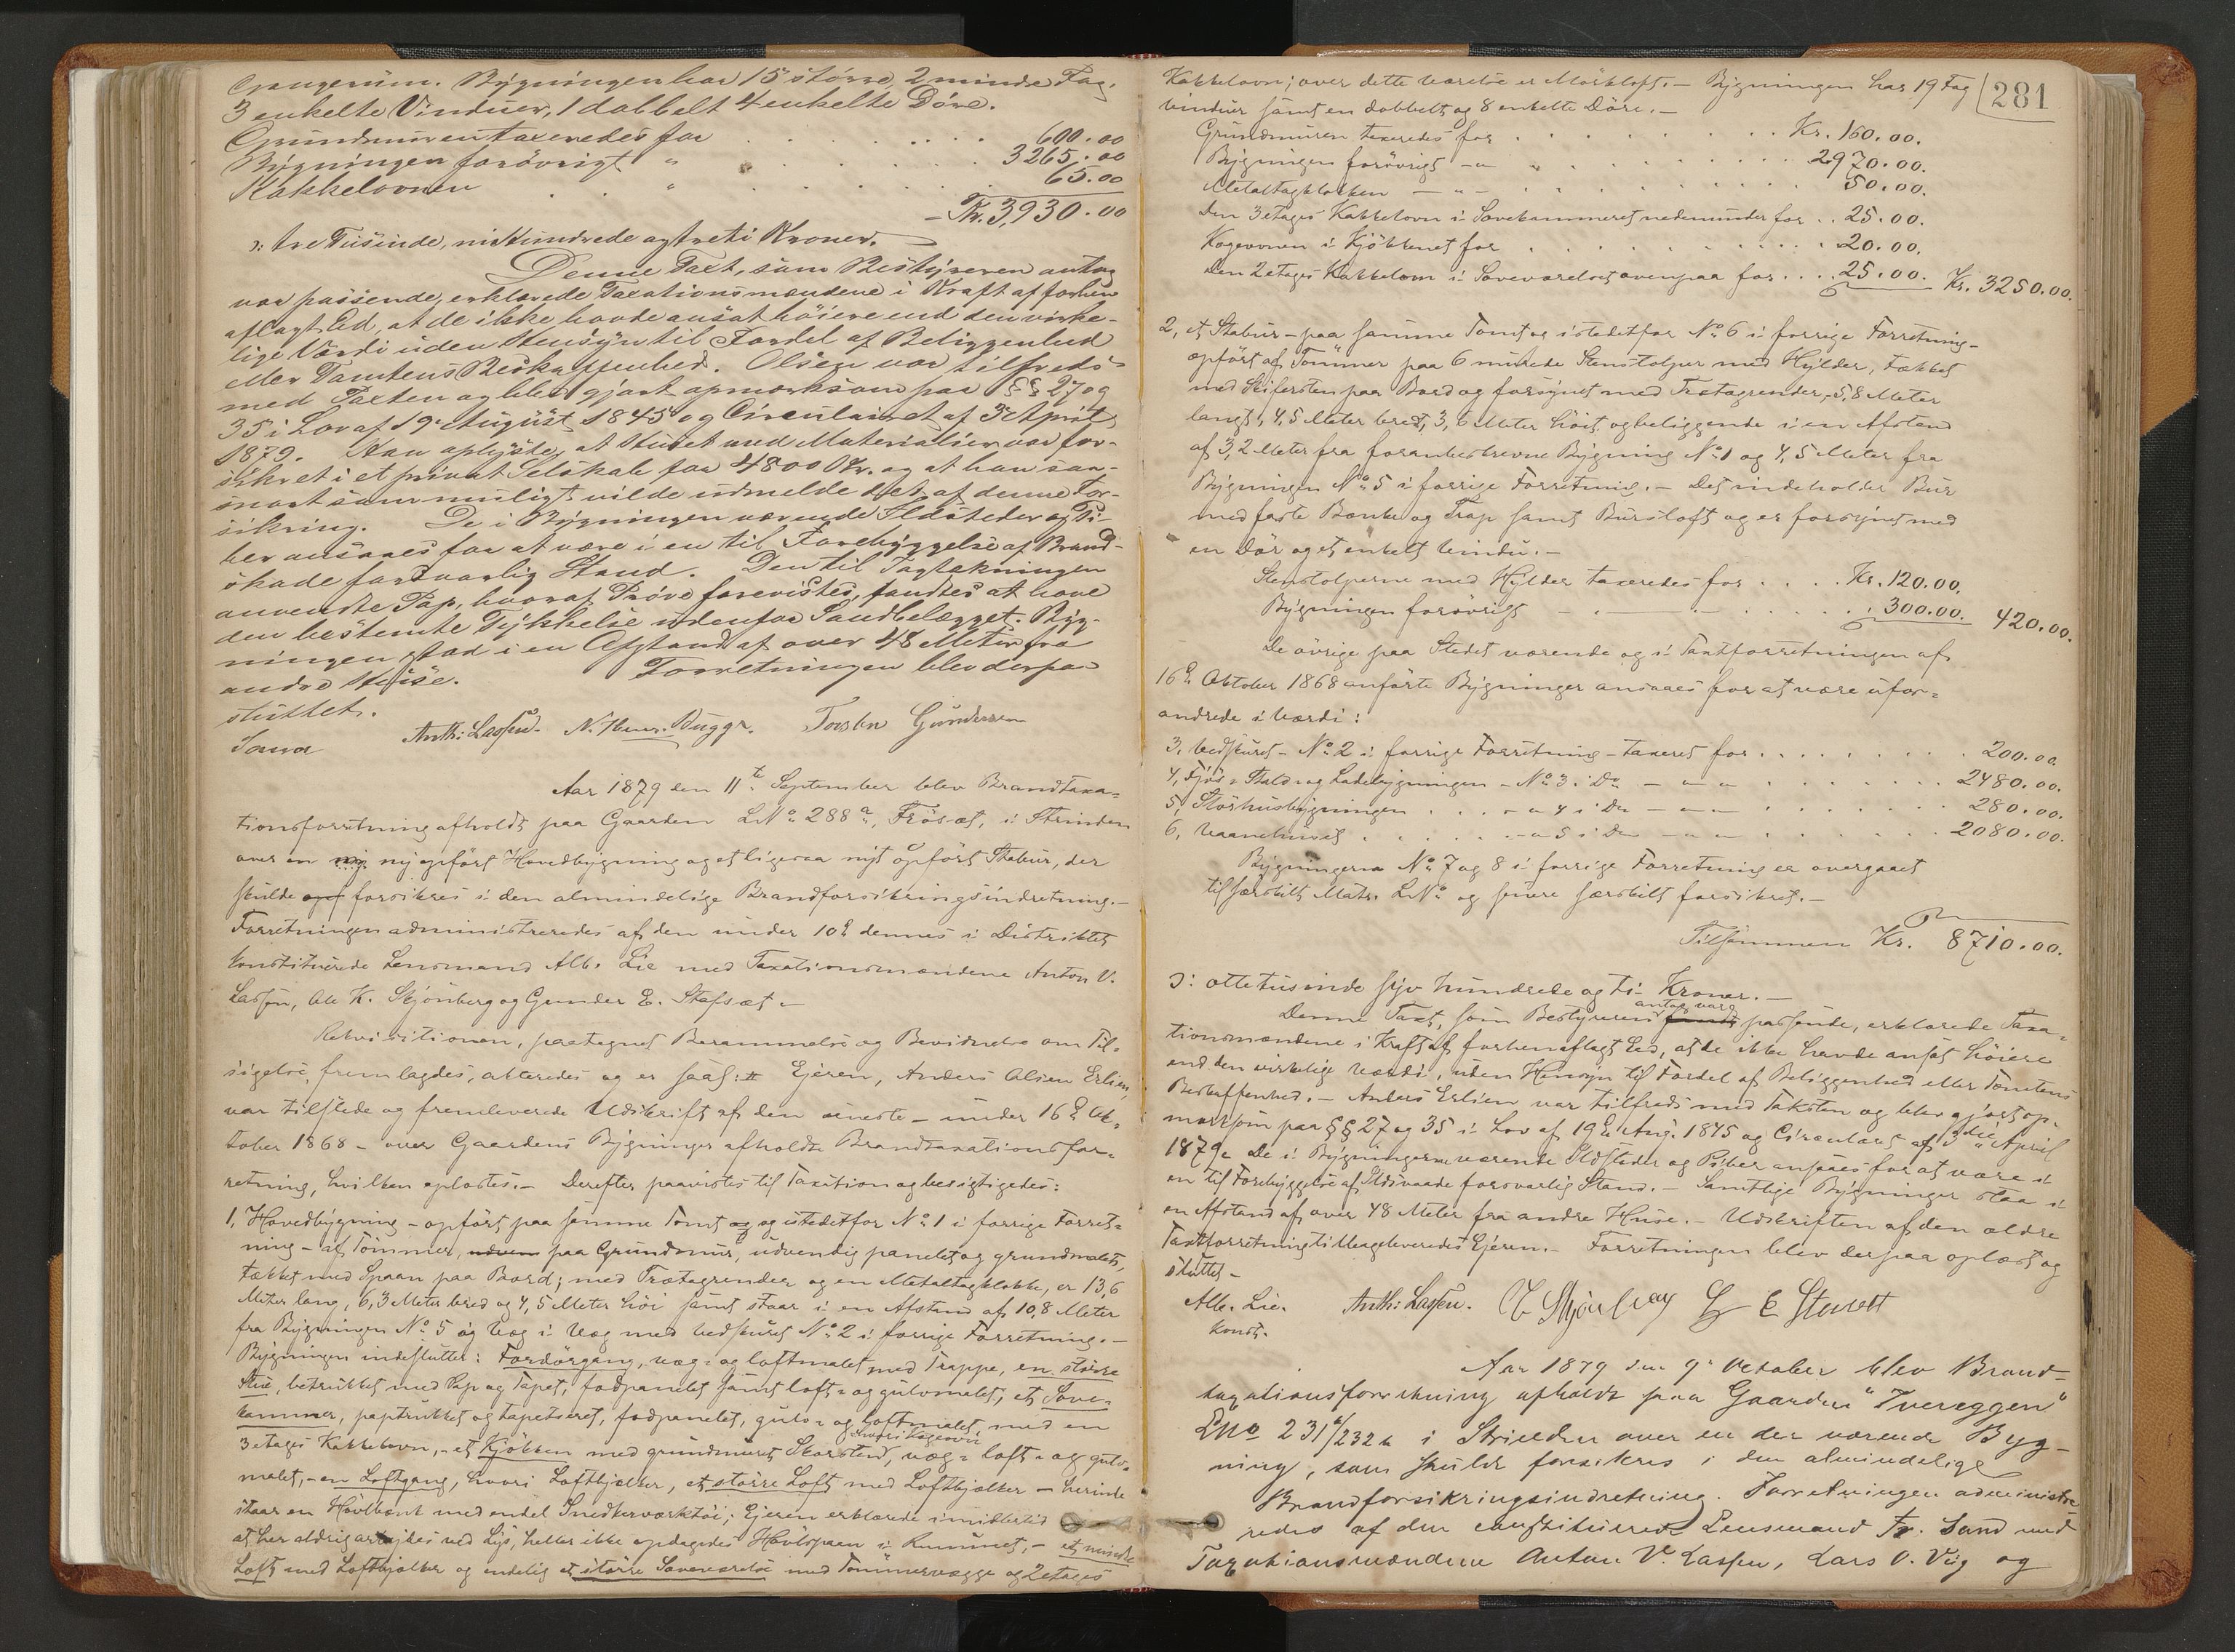 Bygningen har 15 större, 2 mindre Fag,
3 enkelte Vinduer, 1 dobbelt 4 enkelte Döre.
Grundmuren taxeredes for . . . . 600.00
Bygningen forövrigt " . . . . 3265.00
Kakkelovnen . . " . . . . 65.00
Kr. 3,930.00
ɔ: tre Tusinde, ni Hundrede og treti Kroner.
Denne Taxt, som Bestyreren antog
var passende, erklærede Taxationsmændene i Kraft af forhen
aflagt Ed, at de ikke havde ansat höiere end den virke-
lige Værdi uden Hensyn til Fordel af Beliggenhed
eller Tomtens Beskaffenhed. Olsen var tilfreds
med Taxten og blev gjort opmærksom paa §§ 27 og
35 i Lov af 19de August 1845 og Circulairet af 3die April
1879. Han oplyste, at Huset med Materialier var for-
sikret i et privat Selskab for 4800 Kr. og at han saa-
snart som muligt vilde udmelde det af denne For-
sikring. De i Bygningen værende Ildsteder og Pi-
ber ansaaes for at være i en til Forebyggelse af Brand-
skade forsvarlig Stand. Den til Tagtækningen
anvendte Pap, hvoraf Pröve forevistes, fandtes at have
den bestemte Tykkelse udenfor Sandbelægget. Byg-
ningen stod i en Afstand af over 48 Meter fra
andre Huse. Forretningen blev derpaa
sluttet.
Anth: Lassen. Torsten Gundersen
Aar 1879 den 11te September blev Brandtaxa-
tionsforretning afholdt paa Gaarden LNo 288a, Frösæt, i Strinden
over en ny opfört Hovedbygning og et ligesaa nyt opfört Stabur, der
skulde forsikres i den almindelige Brandforsikringsindretning.-
Forretningen administreredes af den under 10de dennes i Distriktet
konstituerede Lensmand Alb. Lie med Taxationsmændene Anton V.
Lassen, Ole K. Skjönberg og Gunder E. Stafsæt.-
Rekvisitionen, paategnet Berammelse og Bevidnelse om Til-
sigelse, fremlagdes, akteredes og er saal: Ejeren, Anders Olsen Erlien,
var tilstede og fremleverede Udskrift af den seneste - under 16de Ok-
tober 1868 - over Gaardens Bygninger afholdte Brandtaxationsfor-
retning, hvilken oplæstes.- Derefter paavistes til Taxation og besigtigedes:
1, Hovedbygning - opfört paa samme Tomt og istedetfor No 1 i forrige Forret-
ning - af Tömmer, paa Grundmur, udvendig panelet og grundmalet,
tækket med Spaan paa Bord; med Trætagrender og en Metaltagklokke, er 13,6
Meter lang, 6,3 Meter bred og 4,5 Meter höi samt staar i en Afstand af 10,8 Meter
fra Bygningen No 5 og Væg i Væg med Vedskuret No 2 i forrige Forretning.-
Bygningen indeslutter: Fordörgang, væg- og loftmalet med Trappe, en större
Stue, betrukket med Pap og Tapet, fodpanelet samt loft- og gulvmalet, et Sove-
kammer, paptrukket og tapetseret, fodpanelet, gulv- og loftmalet med en
3 etages Kakkelovn,- et Kjökken med grundmuret Skorsten, hvori Kogeovn, væg- loft- og gulv-
malet,- en Loftgang, hvori Loftbjælker, et större Loft med Loftbjælker - herinde
staar en Hövlbænk med endel Snedkerværktöi; Ejeren erklærede imidlertid
at her aldrig arbejdes ved Lys, heller ikke opdagedes Hövlspaan i Rummet,- et mindre
Loft med Loftbjælker og endelig et större Soveværelse med Tömmervægge og 2 etages
281
Kakkelovn; over dette Værelse er Mörkloft.- Bygningen har 19 Fag
Vinduer samt en dobbelt og 8 enkelte Döre.-
Grundmuren taxeredes for . . . . Kr. 160.00.
Bygningen forövrigt - " . . . . 2970.00.
Metaltagklokken - " - . . . . 50.00.
Den 3 etages Kakkelovn i Sovekammeret nedenunder for . . 25.00.
Kogeovnen i Kjökkenet for . . . . 20.00.
Den 2 etages Kakkelovn i Soveværelset ovenpaa for . . . 25.00. Kr. 3250.00.
2, et Stabur - paa samme Tomt og istedetfor No 6 i forrige Forretning -
opfört af Tömmer paa 6 murede Stenstolper med Hylder, tækket
med Skifersten paa Bord og forsynet med Trætagrender, 5,8 Meter
langt, 4,5 Meter bredt, 3,6 Meter höit og beliggende i en Afstand
af 3,2 Meter fra foranbeskrevne Bygning No 1 og 4,5 Meter fra
Bygningen No 5 i forrige Forretning.- Det indeholder Bur
med faste Bænke og Trap samt Bursloft og er forsynet med
en Dör og et enkelt Vindu.-
Stenstolperne med Hylder taxeredes for . . . . Kr. 120.00.
Bygningen forövrigt - . - . . . 300.00. 420.00.
De övrige paa Stedet værende og i Taxtforretningen af
16de Oktober 1868 anförte Bygninger ansaaes for at være ufor-
andrede i Værdi:
3, Vedskuret - No 2 i forrige Forretning - taxeret for . . . . 200.00.
4, Fjös- Stald- og Ladebygningen - No 3 i Do - " " . . . . 2480.00.
5, Störhusbygningen . . . - " 4 i Do - " " . . . . 280.00.
6, Vaanehuset . . . . - " 5 i Do - " " . . . . 2080.00.
Bygningerne No 7 og 8 i forrige Forretning er overgaaet
til særskilt Matr. LNo og senere særskilt forsikret.-
Tilsammen Kr. 8710.00.
ɔ: ottetusinde syv hundrede og ti Kroner.-
Denne Taxt, som Bestyreren antog var passende, erklærede Taxa-
tionsmændene i Kraft af forhen aflagt Ed, at de ikke havde ansat höiere
end den virkelige Værdi, uden Hensyn til Fordel af Beliggenhed eller Tomtens
Beskaffenhed.- Anders Erlien var tilfreds med Taksten og blev gjort op-
mærksom paa §§ 27 og 35 i Lov af 19de Aug. 1845 og Circulært af 3die April
1879. De i Bygningerne værende Ildsteder og Piber ansaaes for at være i
en til Forebyggelse af Ildsvaade forsvarlig Stand.- Samtlige Bygninger staa i
en Afstand af over 48 Meter fra andre Huse.- Udskriften af den ældre
Taxtforretning tilbageleveredes Ejeren.- Forretningen blev derpaa oplæst og
sluttet -
Alb. Lie. Anth: Lassen. O K Skjönberg G E Stavsett
Konst.
Aar 1879 den 9de Oktober blev Brand-
taxationsforretning afholdt paa Gaarden "Tvereggen"
Lno 231a/232a i Strinden over en der værende Byg-
ning, som skulde forsikres i den almindelige
Brandforsikringsindretning. Forretningen administre-
redes af den constituerede Lensmand Fr. Sand med
Taxationsmændene Anton V. Lassen, Lars O. Vig og